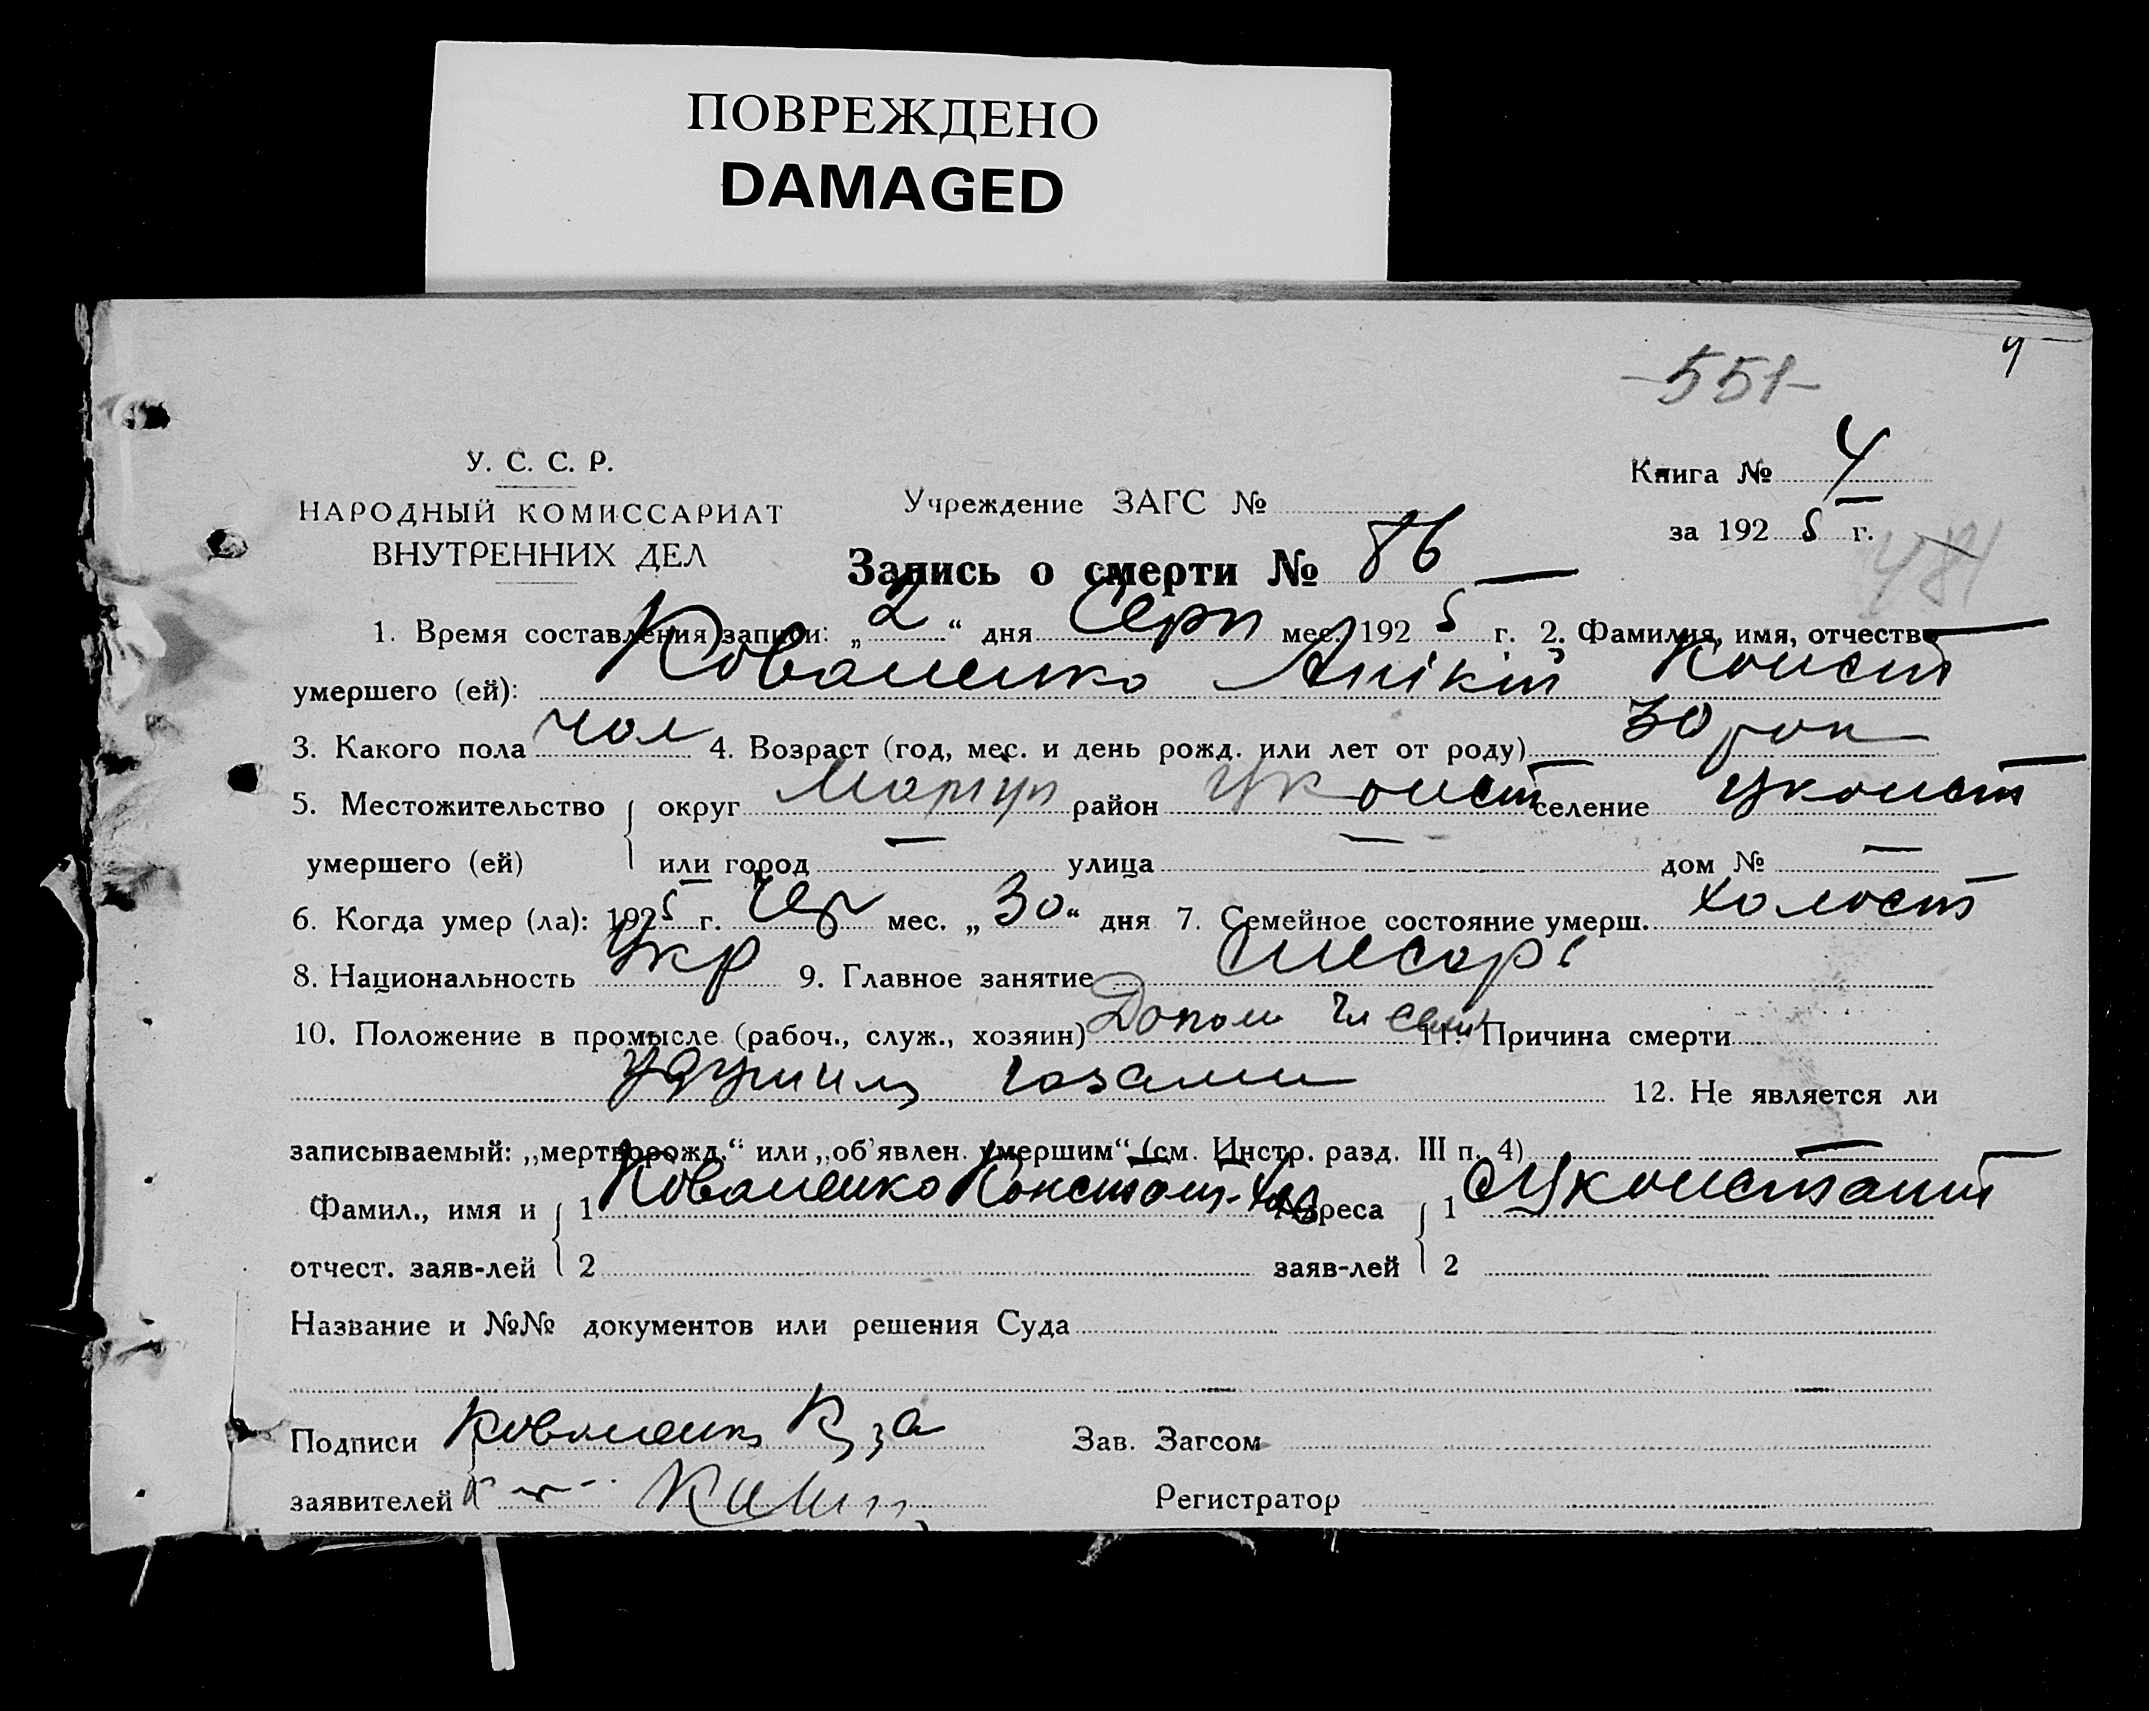 ПОВРЕЖДЕНО
DAMAGED
4
-551-
У. С. С. Р.
НАРОДНЫЙ КОМИССАРИАТ
ВНУТРЕННИХ ДЕЛ
Учреждение ЗАГС №
Книга № 4
за 192 5 г.
481
Запись о смерти № 86
1. Время составления записи: „ 2 “ дня Серп мес. 192 5 г. 2. Фамилия, имя, отчество
умершего (ей): Коваленко Анікій Конст
3. Какого пола чол 4. Возраст (год, мес. и день рожд. или лет от роду) 30 рок
5. Местожительство округ Маріуп район Уконст селение Уконст
умершего (ей) или город — улица — дом № —
6. Когда умер (ла): 192 5 г. мес. „ 30 “ дня 7. Семейное состояние умерш. холост
8. Национальность Укр 9. Главное занятие слюсарь
10. Положение в промысле (рабоч., служ., хозяин) Допом чл семи 11. Причина смерти
газами 12. Не является ли
записываемый: „мертворожд.“ или „об'явлен. умершим“ (см. Инстр. разд. III п. 4) —
Фамил., имя и 1 Коваленко Констант. Адреса 1 с Уконстант
отчест. заяв-лей 2 заяв-лей 2
Название и №№ документов или решения Суда
Подписи Коваленк К за Зав. Загсом
заявителей Регистратор